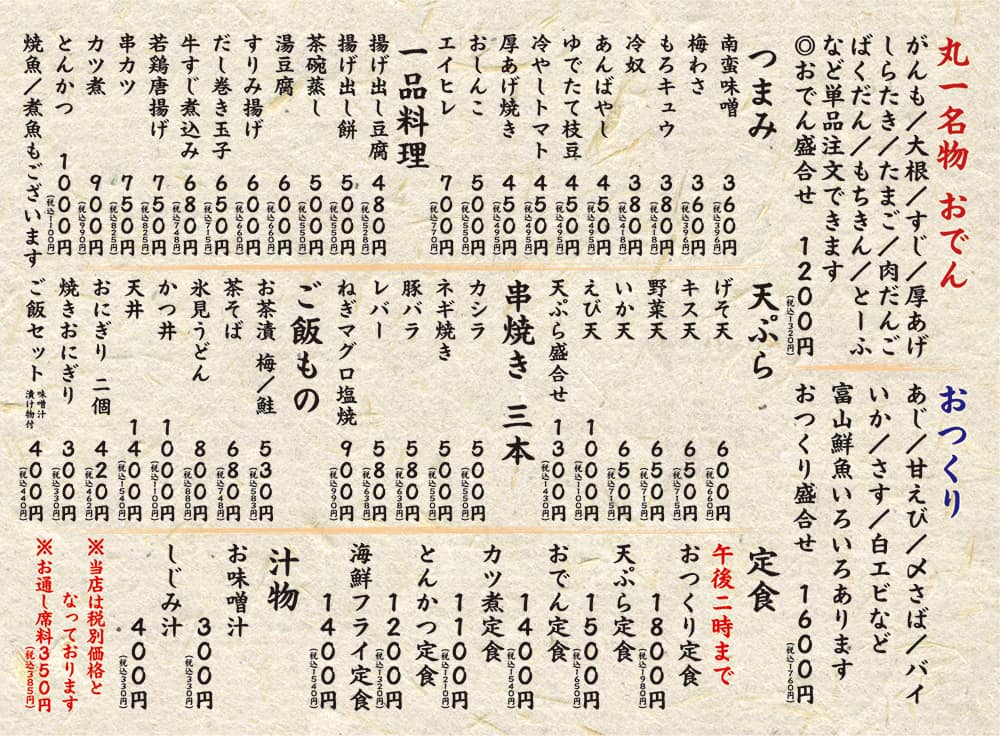 丸一名物 おでん
がんも／大根／すじ／厚あげ
しらたき／たまご／肉だんご
ばくだん／もちきん／とーふ
など単品注文できます
◎おでん盛合せ 1200円(税込1320円)
おつくり
あじ／甘えび／〆さば／バイ
いか／さす／白エビなど
富山鮮魚いろいろあります
おつくり盛合せ 1600円(税込1760円)
つまみ
南蛮味噌 360円(税込396円)
梅わさ 360円(税込396円)
もろキュウ 380円(税込418円)
冷奴 380円(税込418円)
あんばやし 450円(税込495円)
ゆでたて枝豆 450円(税込495円)
冷やしトマト 450円(税込495円)
厚あげ焼き 450円(税込495円)
おしんこ 500円(税込550円)
エイヒレ 700円(税込770円)
一品料理
揚げ出し豆腐 480円(税込528円)
揚げ出し餅 500円(税込550円)
茶碗蒸し 500円(税込550円)
湯豆腐 600円(税込660円)
すりみ揚げ 600円(税込660円)
だし巻き玉子 650円(税込715円)
牛すじ煮込み 680円(税込748円)
若鶏唐揚げ 750円(税込825円)
串カツ 750円(税込825円)
カツ煮 900円(税込990円)
とんかつ 1000円(税込1100円)
焼魚／煮魚もございます
天ぷら
げそ天 600円(税込660円)
キス天 650円(税込715円)
野菜天 650円(税込715円)
いか天 650円(税込715円)
えび天 1000円(税込1100円)
天ぷら盛合せ 1300円(税込1430円)
串焼き 三本
カシラ 500円(税込550円)
ネギ焼き 500円(税込550円)
豚バラ 580円(税込638円)
レバー 580円(税込638円)
ねぎマグロ塩焼 900円(税込990円)
ご飯もの
お茶漬 梅／鮭 530円(税込583円)
茶そば 680円(税込748円)
氷見うどん 800円(税込880円)
かつ丼 1000円(税込1100円)
天丼 1400円(税込1540円)
おにぎり 二個 420円(税込462円)
焼きおにぎり 300円(税込330円)
ご飯セット 味噌汁 漬け物付 400円(税込440円)
定食
午後二時まで
おつくり定食 1800円(税込1980円)
天ぷら定食 1500円(税込1650円)
おでん定食 1400円(税込1540円)
カツ煮定食 1100円(税込1210円)
とんかつ定食 1200円(税込1320円)
海鮮フライ定食 1400円(税込1540円)
汁物
お味噌汁 300円(税込330円)
しじみ汁 400円(税込330円)
※当店は税別価格と
なっております
※お通し席料350円(税込385円)